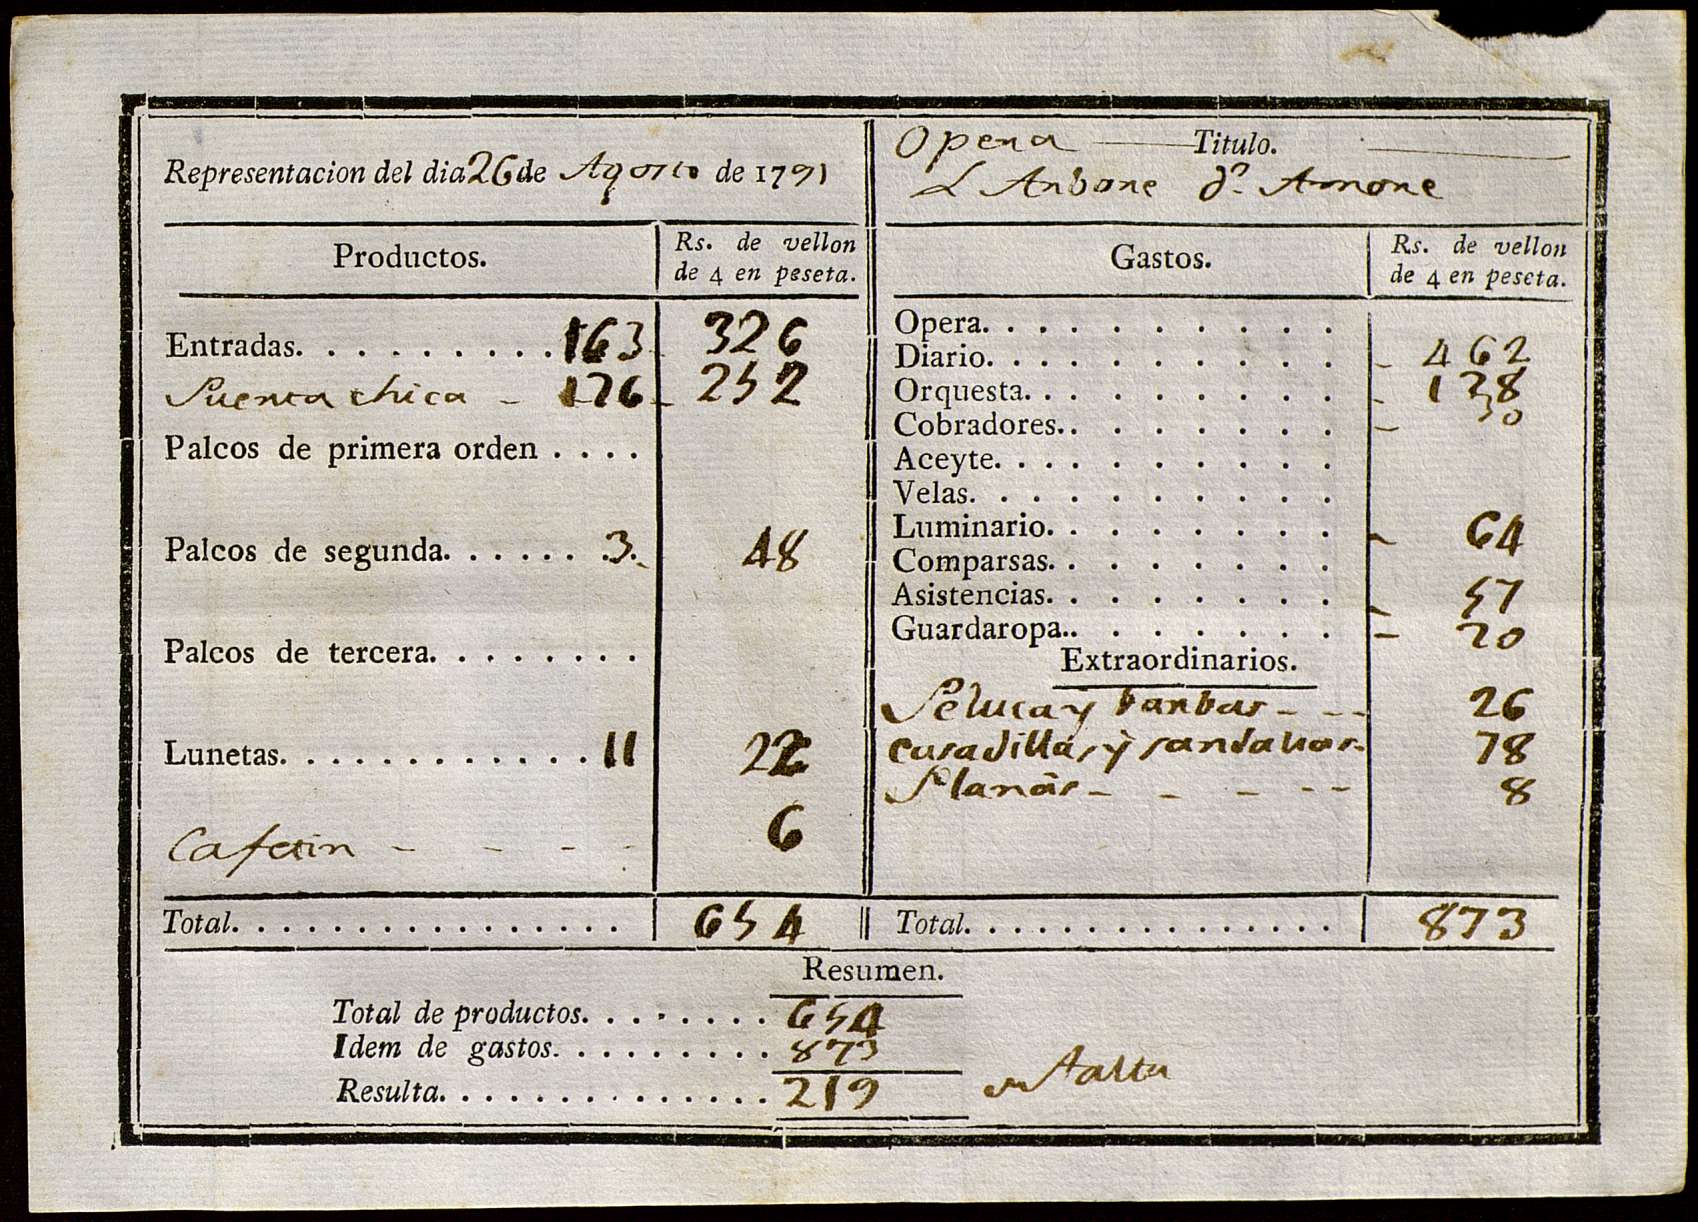 Representacion del dia 26 de Agosto de 1791
Opera Titulo.
L Arbore Amore
Productos. Rs. de vellon de 4 en peseta.
Entradas. 163 326
Puerta chica 126 252
Palcos de primera orden
Palcos de segunda. 3. 48
Palcos de tercera.
Lunetas. 11 22
Cafetin 6
Total. 654
Gastos. Rs. de vellon de 4 en peseta.
Opera.
Diario. 462
Orquesta. 128
Cobradores.. 30
Aceyte.
Velas.
Luminario. 64
Comparsas.
Asistencias. 57
Guardaropa.. 20
Extraordinarios.
Peluca y barbas 26
y sandalias 78
8
Total. 873
Resumen.
Total de productos. 654
Idem de gastos. 873
Resulta. 219 falta